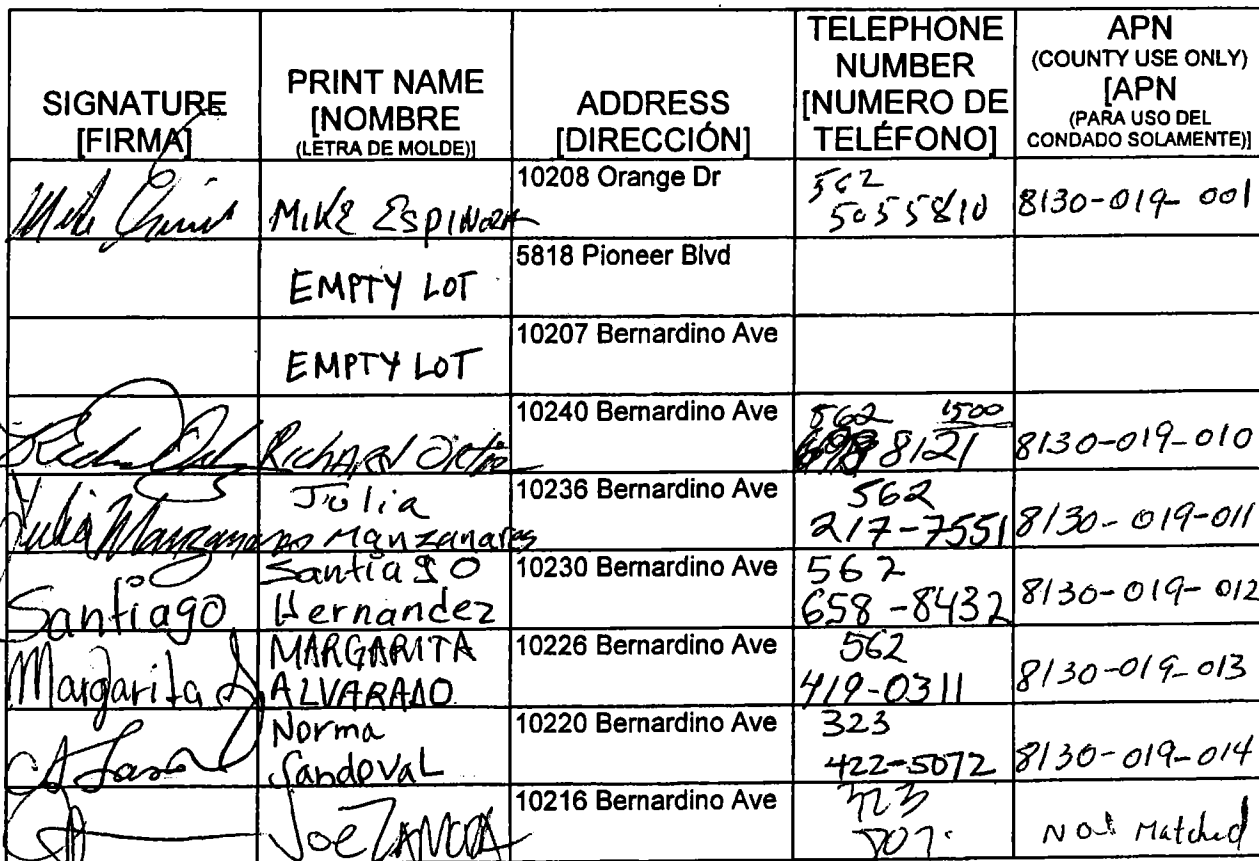 SIGNATURE
[FIRMA]
PRINT NAME
[NOMBRE
(LETRA DE MOLDE)]
ADDRESS
[DIRECCIÓN]
TELEPHONE
NUMBER
[NUMERO DE
TELÉFONO]
APN
(COUNTY USE ONLY)
[APN
(PARA USO DEL
CONDADO SOLAMENTE)]
Mike
MIKE ESPINOZA
10208 Orange Dr
562
5055810
8130-019-001
EMPTY LOT
5818 Pioneer Blvd
EMPTY LOT
10207 Bernardino Ave
RichARD
10240 Bernardino Ave
562 1500
8121
8130-019-010
Julia Manzanares
Julia
Manzanares
10236 Bernardino Ave
562
217-7551
8130-019-011
Santiago
Santiago
Hernandez
10230 Bernardino Ave
562
658-8432
8130-019-012
Margarita A
MARGARITA
ALVARADO
10226 Bernardino Ave
562
419-0311
8130-019-013
Norma
Sandoval
10220 Bernardino Ave
323
422-5072
8130-019-014
Joe
10216 Bernardino Ave
323
707-
Not Matched